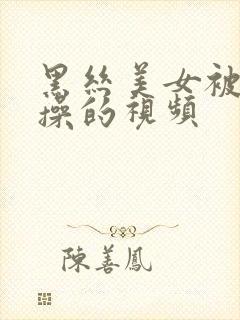 黑丝美女被
操的視频
陳善鳳